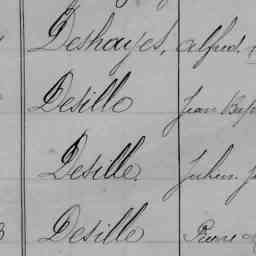 Deshayes, Alfred.
Desille Jean Bap
Desille Julien
Desille Pierre